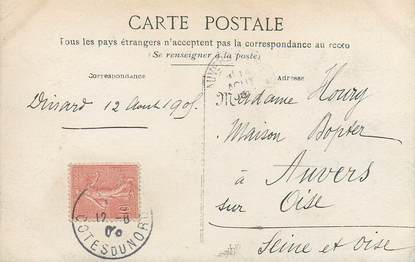 CARTE POSTALE
Tous les pays étrangers n'acceptent pas la correspondance au recto
(Se renseigner à la poste)
Correspondance
Adresse
Dinard 12 Août 190
Madame Houry
Maison
à
Auvers
sur Oise
Seine et Oise
AOUT
12
COTES DU NORD